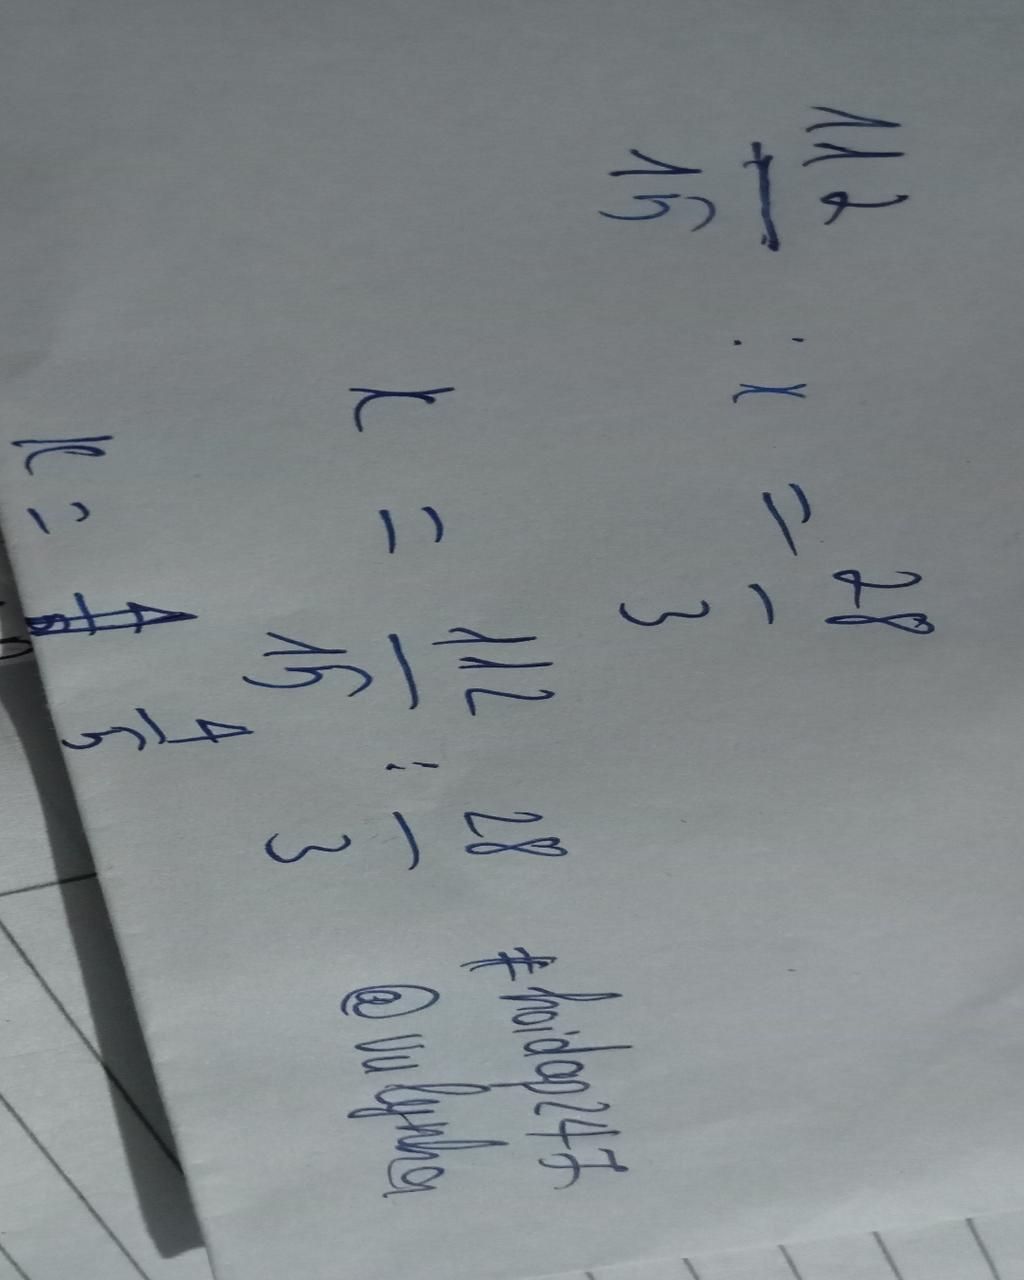 112/15 : x = 28/3
x = 112/15 : 28/3
x = 4/5
#hoidap247
@vulynha